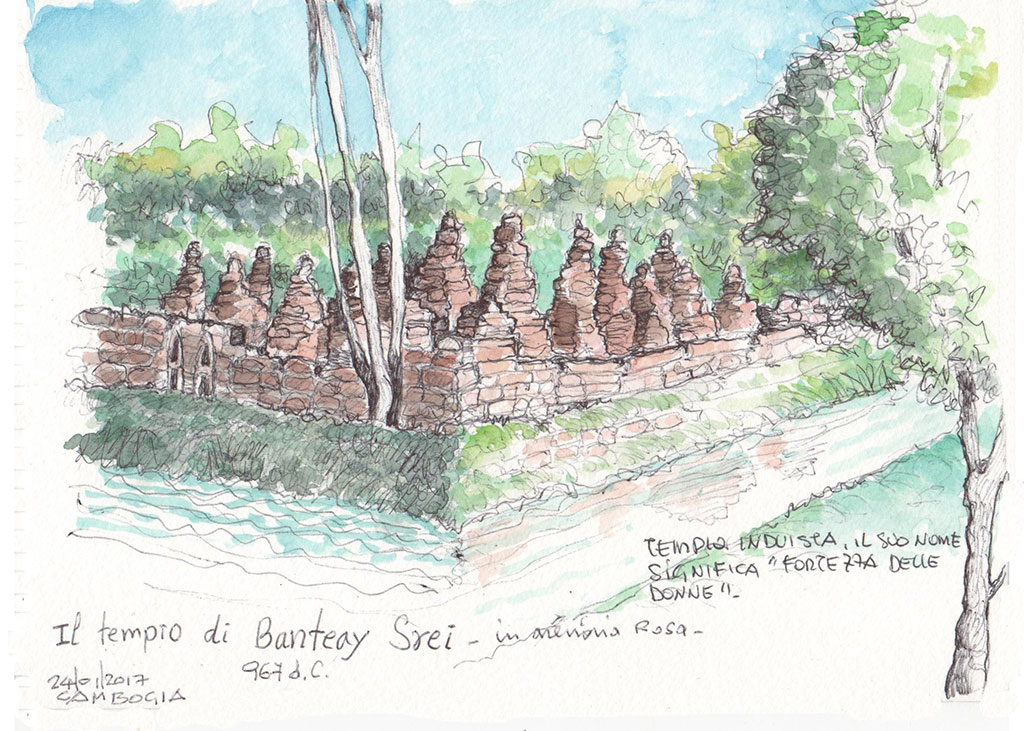 TEMPIO INDUISTA, IL SUO NOME
SIGNIFICA "FORTEZZA DELLE
DONNE" -
Il tempio di Banteay Srei - in arenaria Rosa -
967 d.C.
24/01/2017
CAMBOGIA